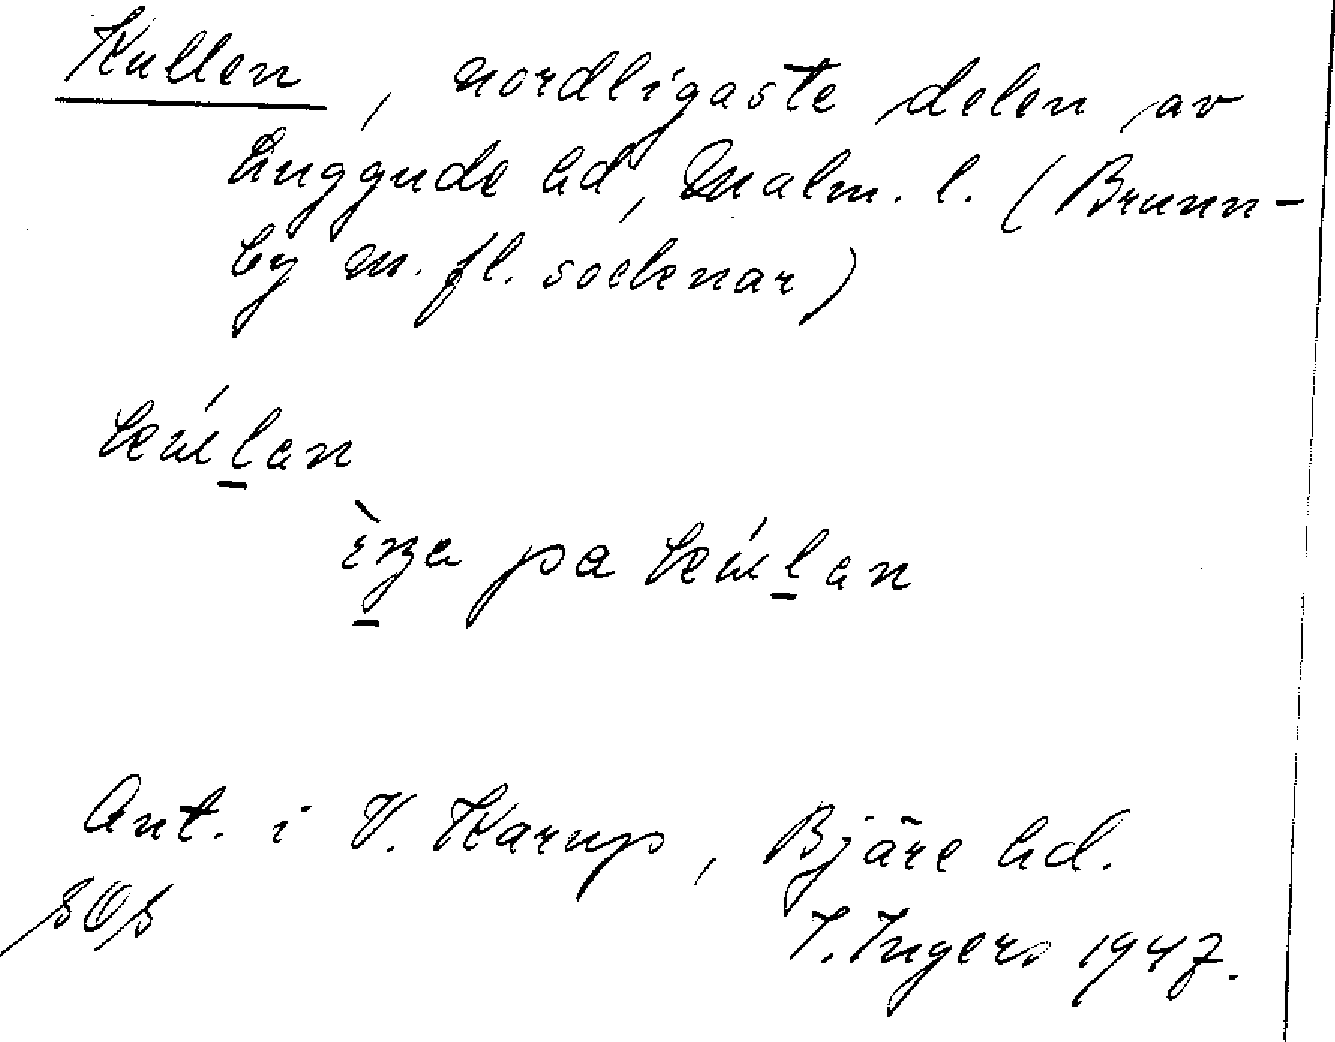 Kullen, nordligaste delen av
Luggude hd, Malm. l. (Brunn-
by m. fl. socknar)
kúl̲an
pa kúl̲an
Ant. i V. Karup, Bjäre hd.
I. Ingers 1947.